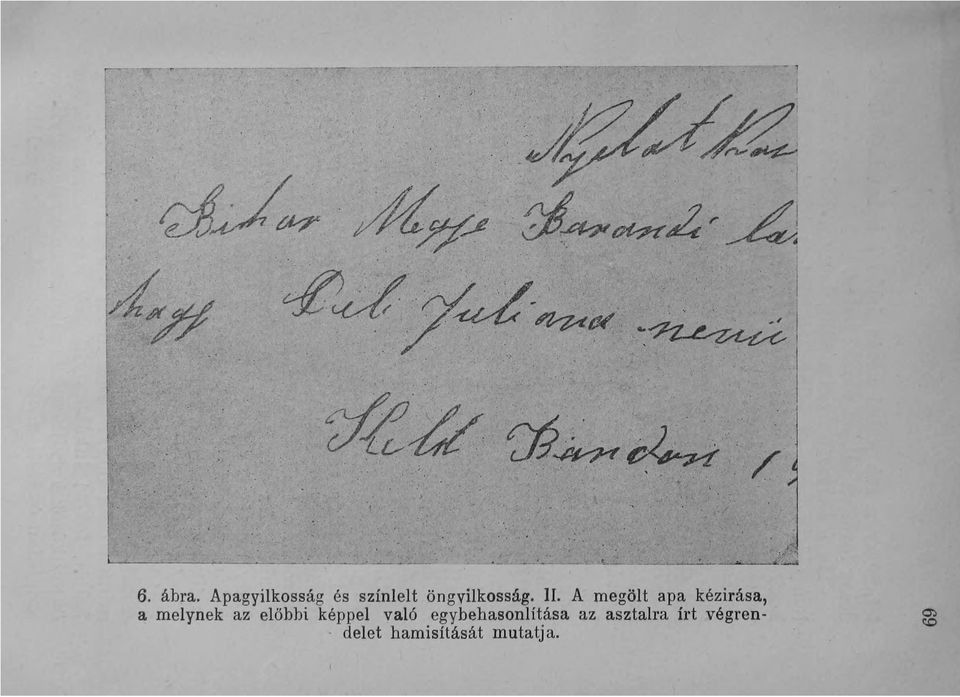 Nyelat
Bihar Megye Barandi la
hagy Deli Juliana nevü
Keld Barandon 19
6. ábra. Apagyilkosság és színlelt öngyilkosság. II. A megölt apa kézirása,
a melynek az előbbi képpel való egybehasonlítása az asztalra írt végren-
delet hamisítását mutatja.
69